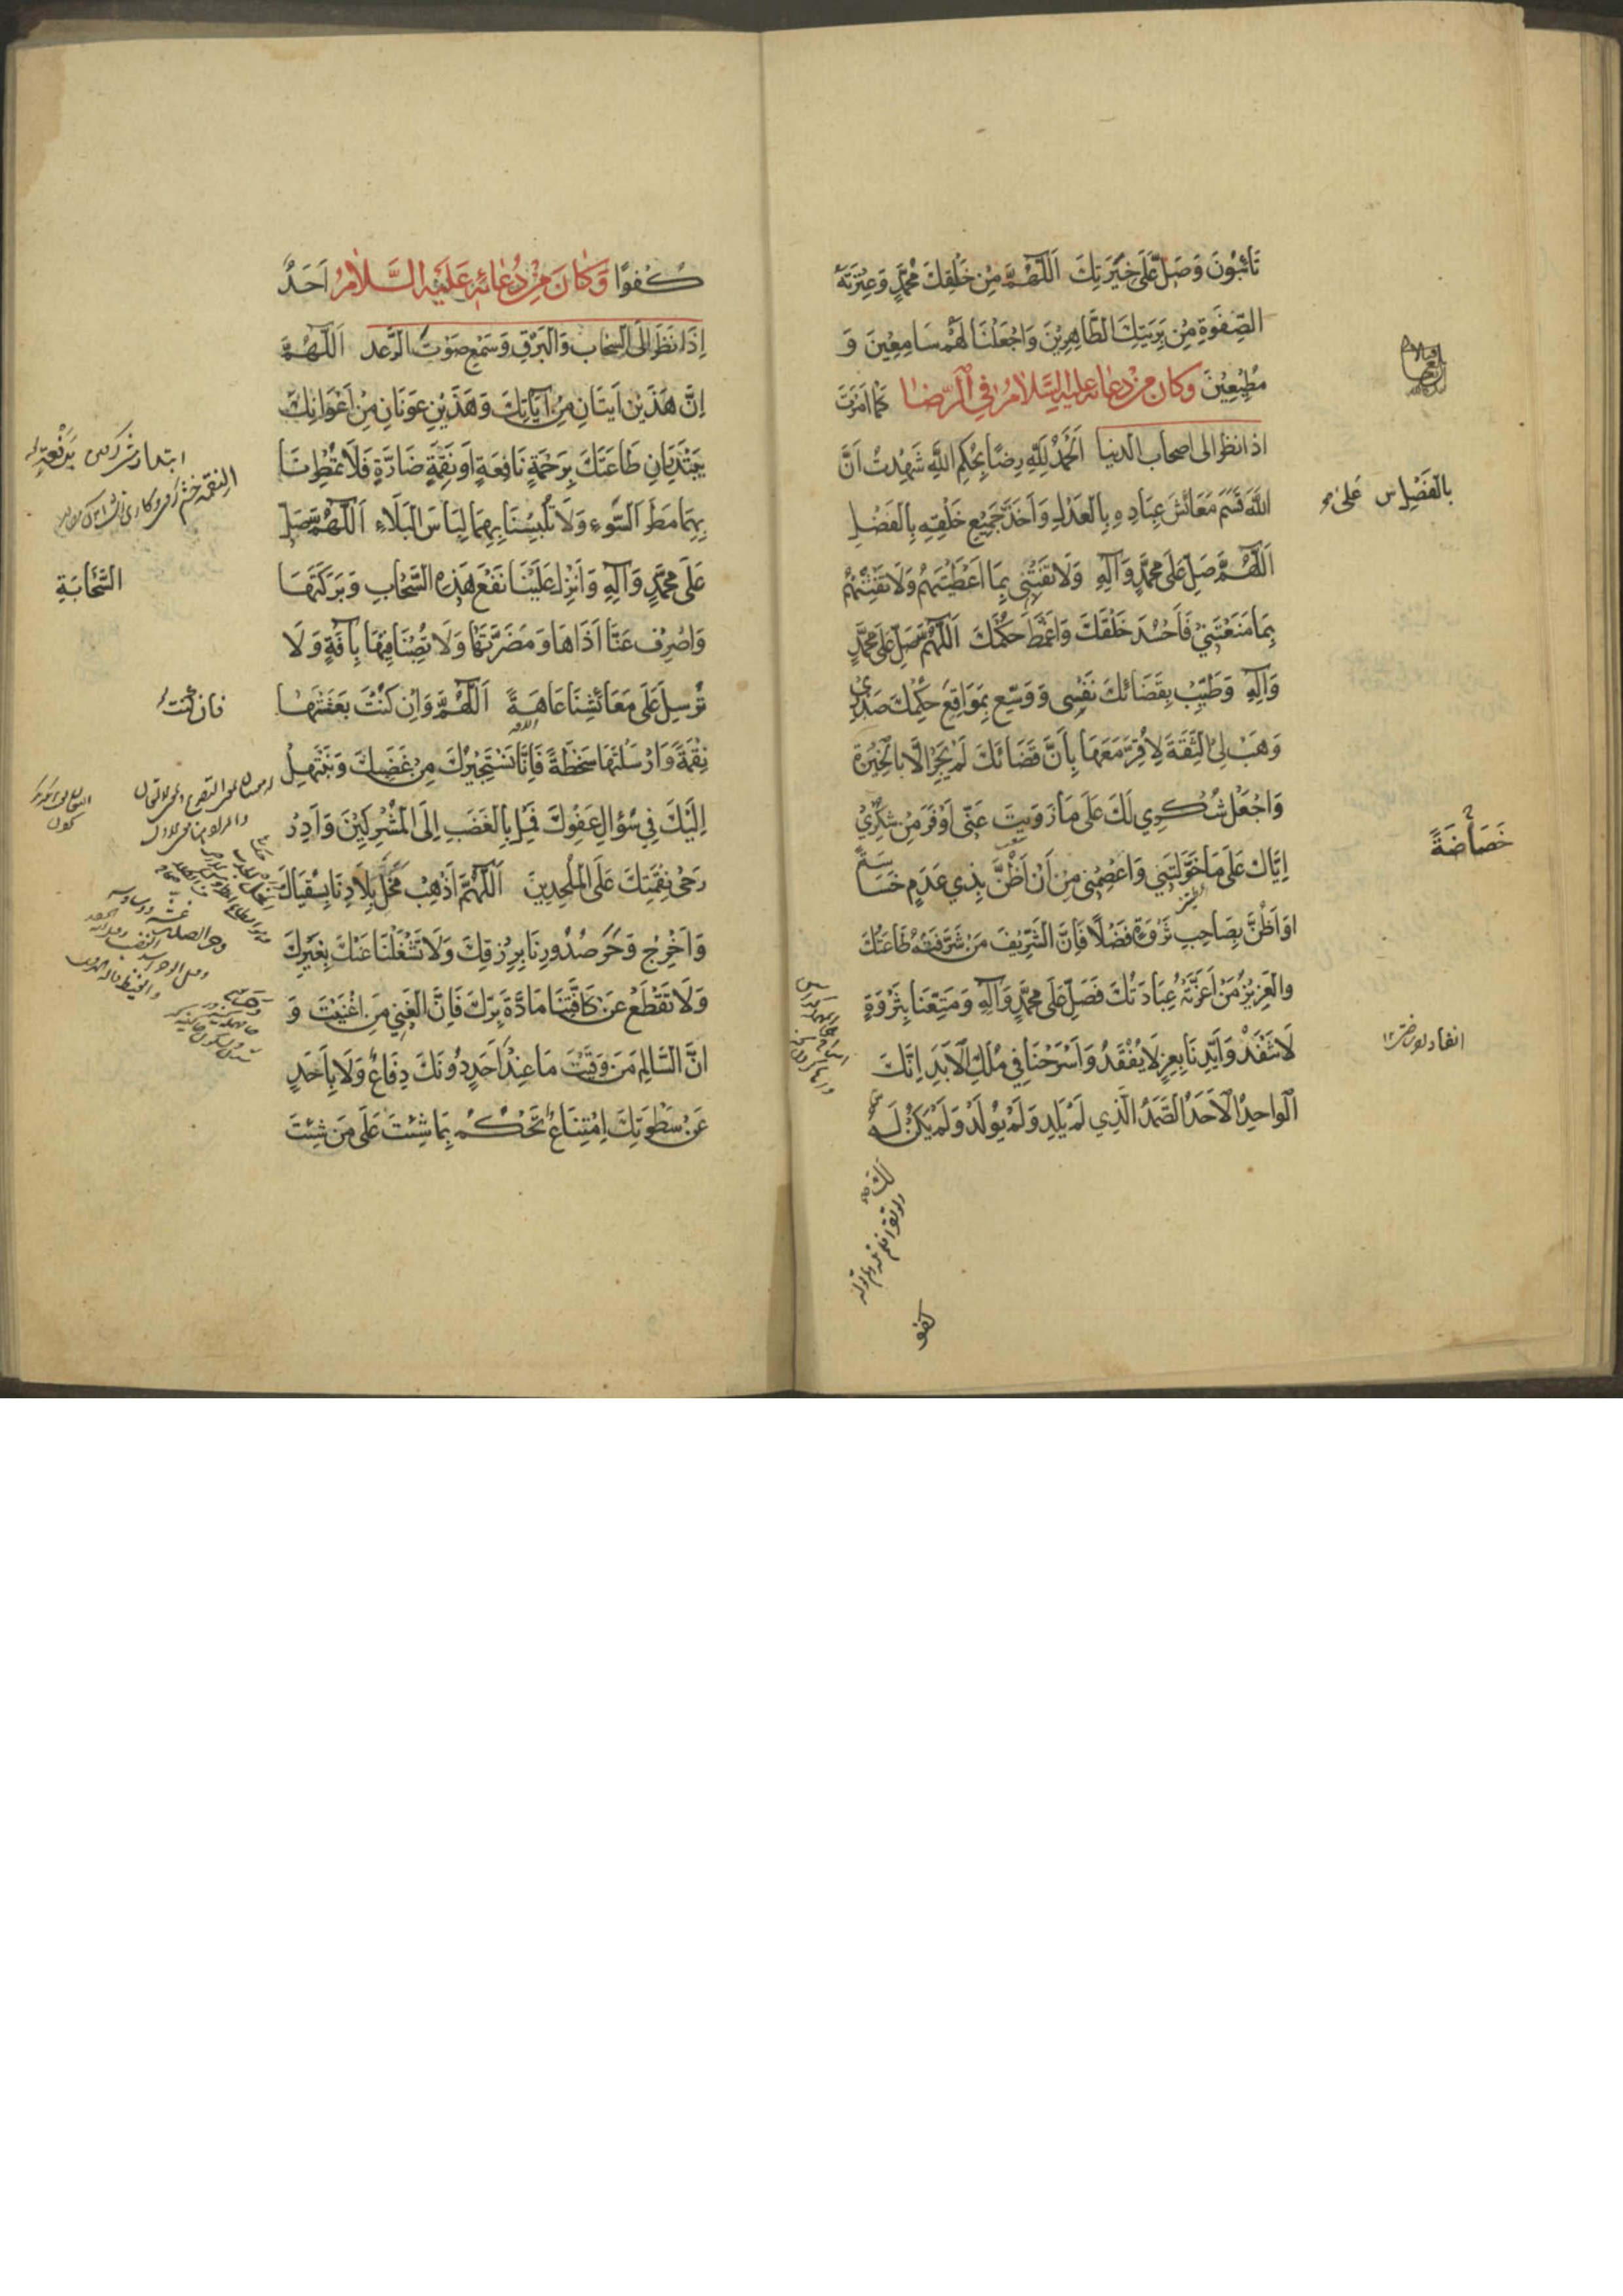 تَائِبُونَ وَصَلِّ عَلَى خِيَرَتِكَ اَللّٰهُمَّ مِنْ خَلْقِكَ مُحَمَّدٍ وَعِتْرَتِهِ
الصِّفْوَةِ مِنْ بَرِيَّتِكَ الطَّاهِرِينَ وَاجْعَلْنَا لَهُمْ سَامِعِينَ وَ
مُطِيعِينَ وَكانَ مِنْ دُعائِهِ عليه السَّلامُ فِي الرِّضَا كَمَا اَمَرْتَ
اذا نظر الى اصحاب الدنيا اَلْحَمْدُ لِلّٰهِ رِضًا بِحُكْمِ اللّٰهِ شَهِدْتُ اَنَّ
اللّٰهَ قَسَّمَ مَعَائِشَ عِبَادِهِ بِالْعَدْلِ وَاَخَذَ جَمِيْعَ خَلْقِهِ بِالْفَضْلِ
بِالْفَضْلِ س عَلَى
اَللّٰهُمَّ صَلِّ عَلَى مُحَمَّدٍ وَآلِهِ وَلَا تَفْتِنِّي بِمَا اَعْطَيْتَهُمْ وَلَا تَفْتِنْهُمْ
بِمَا مَنَعْتَنِي فَاَحْسُدَ خَلْقَكَ وَاَغْمَطَ حُكْمَكَ اَللّٰهُمَّ صَلِّ عَلَى مُحَمَّدٍ
وَآلِهِ وَطَيِّبْ بِقَضَائِكَ نَفْسِي وَوَسِّعْ بِمَوَاقِعِ حُكْمِكَ صَدْرِي
وَهَبْ لِي الثِّقَةَ لِاُقِرَّ مَعَهَا بِاَنَّ قَضَائَكَ لَمْ يَجْرِ اِلَّا بِالْخِيَرَةِ
وَاجْعَلْ شُكْرِي لَكَ عَلَى مَا زَوَيْتَ عَنِّي اَوْفَرَ مِنْ شُكْرِي
اِيَّاكَ عَلَى مَا خَوَّلْتَنِي وَاعْصِمْنِي مِنْ اَنْ اَظُنَّ بِذِي عَدَمٍ خَسَاسَةً
خَصَاصَةً
اَوْ اَظُنَّ بِصَاحِبِ ثَرْوَةٍ فَضْلًا فَاِنَّ الشَّرِيفَ مَنْ شَرَّفَتْهُ طَاعَتُكَ
وَالْعَزِيزَ مَنْ اَعَزَّتْهُ عِبَادَتُكَ فَصَلِّ عَلَى مُحَمَّدٍ وَآلِهِ وَمَتِّعْنَا بِثَرْوَةٍ
لَا تَنْفَدُ وَاَيِّدْنَا بِعِزٍّ لَا يُفْقَدُ وَاَسْرِحْنَا فِي مُلْكِ الْاَبَدِ اِنَّكَ
الْوَاحِدُ الْاَحَدُ الصَّمَدُ الَّذِي لَمْ يَلِدْ وَلَمْ يُولَدْ وَلَمْ يَكُنْ لَهُ
لَكَ
كفو
كُفُوًا وَكَانَ مِنْ دُعَائِهِ عَلَيْهِ السَّلَامُ اَحَدٌ
اِذَا نَظَرَ اِلَى السَّحَابِ وَالْبَرْقِ وَسَمِعَ صَوْتَ الرَّعْدِ اَللّٰهُمَّ
اِنَّ هَذَيْنِ اٰيَتَانِ مِنْ آيَاتِكَ وَهَذَيْنِ عَوْنَانِ مِنْ اَعْوَانِكَ
يَبْتَدِرَانِ طَاعَتَكَ بِرَحْمَةٍ نَافِعَةٍ اَوْ نَقِمَةٍ ضَارَّةٍ فَلَا تُمْطِرْنَا
بِهِمَا مَطَرَ السَّوْءِ وَلَا تُلْبِسْنَا بِهِمَا لِبَاسَ الْبَلَاءِ اَللّٰهُمَّ صَلِّ
عَلَى مُحَمَّدٍ وَآلِهِ وَاَنْزِلْ عَلَيْنَا نَفْعَ هَذِهِ السَّحَابِ وَبَرَكَتَهَا
السَّحَابَةِ
وَاصْرِفْ عَنَّا اَذَاهَا وَمَضَرَّتَهَا وَلَا تُصِبْنَا فِيهَا بِآفَةٍ وَلَا
تُرْسِلْ عَلَى مَعَائِشِنَا عَاهَةً اَللّٰهُمَّ وَاِنْ كُنْتَ بَعَثْتَهَا
فان كنت
نِقْمَةً وَاَرْسَلْتَهَا سَخْطَةً فَاِنَّا نَسْتَجِيرُكَ مِنْ غَضَبِكَ وَنَبْتَهِلُ
اِلَيْكَ فِي سُؤَالِ عَفْوِكَ فَمِلْ بِالْغَضَبِ اِلَى الْمُشْرِكِينَ وَاَدِرْ
رَحَى نِقْمَتِكَ عَلَى الْمُلْحِدِينَ اَللّٰهُمَّ اَذْهِبْ مَحْلَ بِلَادِنَا بِسُقْيَاكَ
وَاَخْرِجْ وَحَرَ صُدُورِنَا بِرِزْقِكَ وَلَا تَشْغَلْنَا عَنْكَ بِغَيْرِكَ
وَلَا تَقْطَعْ عَنْ كَافَّتِنَا مَادَّةَ بِرِّكَ فَاِنَّ الْغَنِيَّ مَنْ اَغْنَيْتَ وَ
اِنَّ السَّالِمَ مَنْ وَقَيْتَ مَا عِنْدَ اَحَدٍ دُونَكَ دِفَاعٌ وَلَا بِاَحَدٍ
عَنْ سَطْوَتِكَ اِمْتِنَاعٌ تَحْكُمُ بِمَا شِئْتَ عَلَى مَنْ شِئْتَ